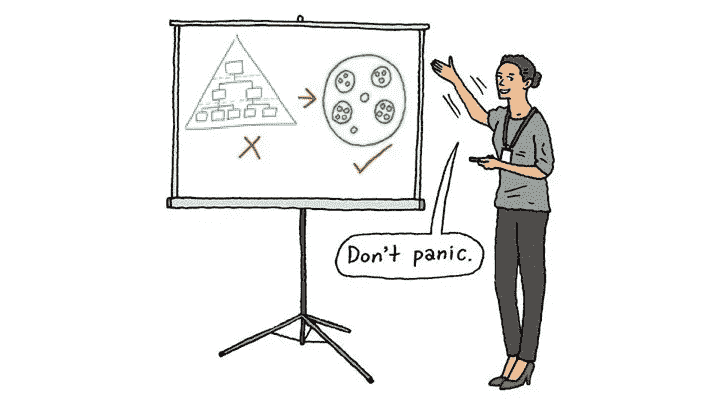 Don't panic.